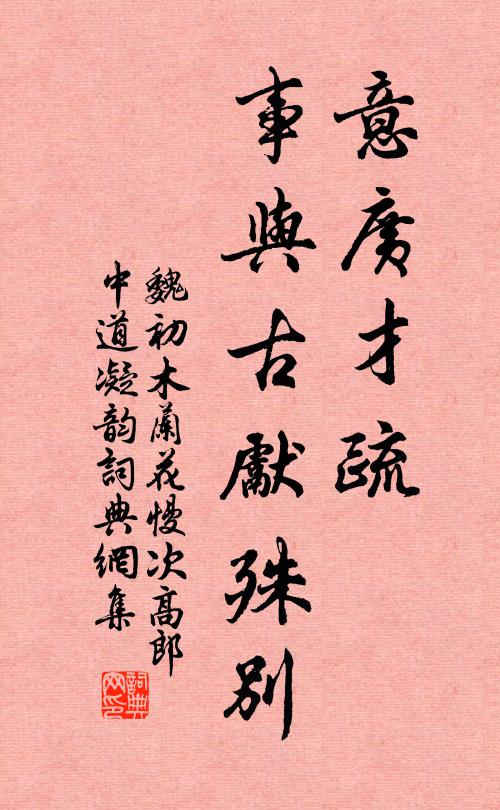 意廣才疏
事與古獻殊別
魏初木蘭花慢次高郎
中道凝韵詞典網集
詞典网印